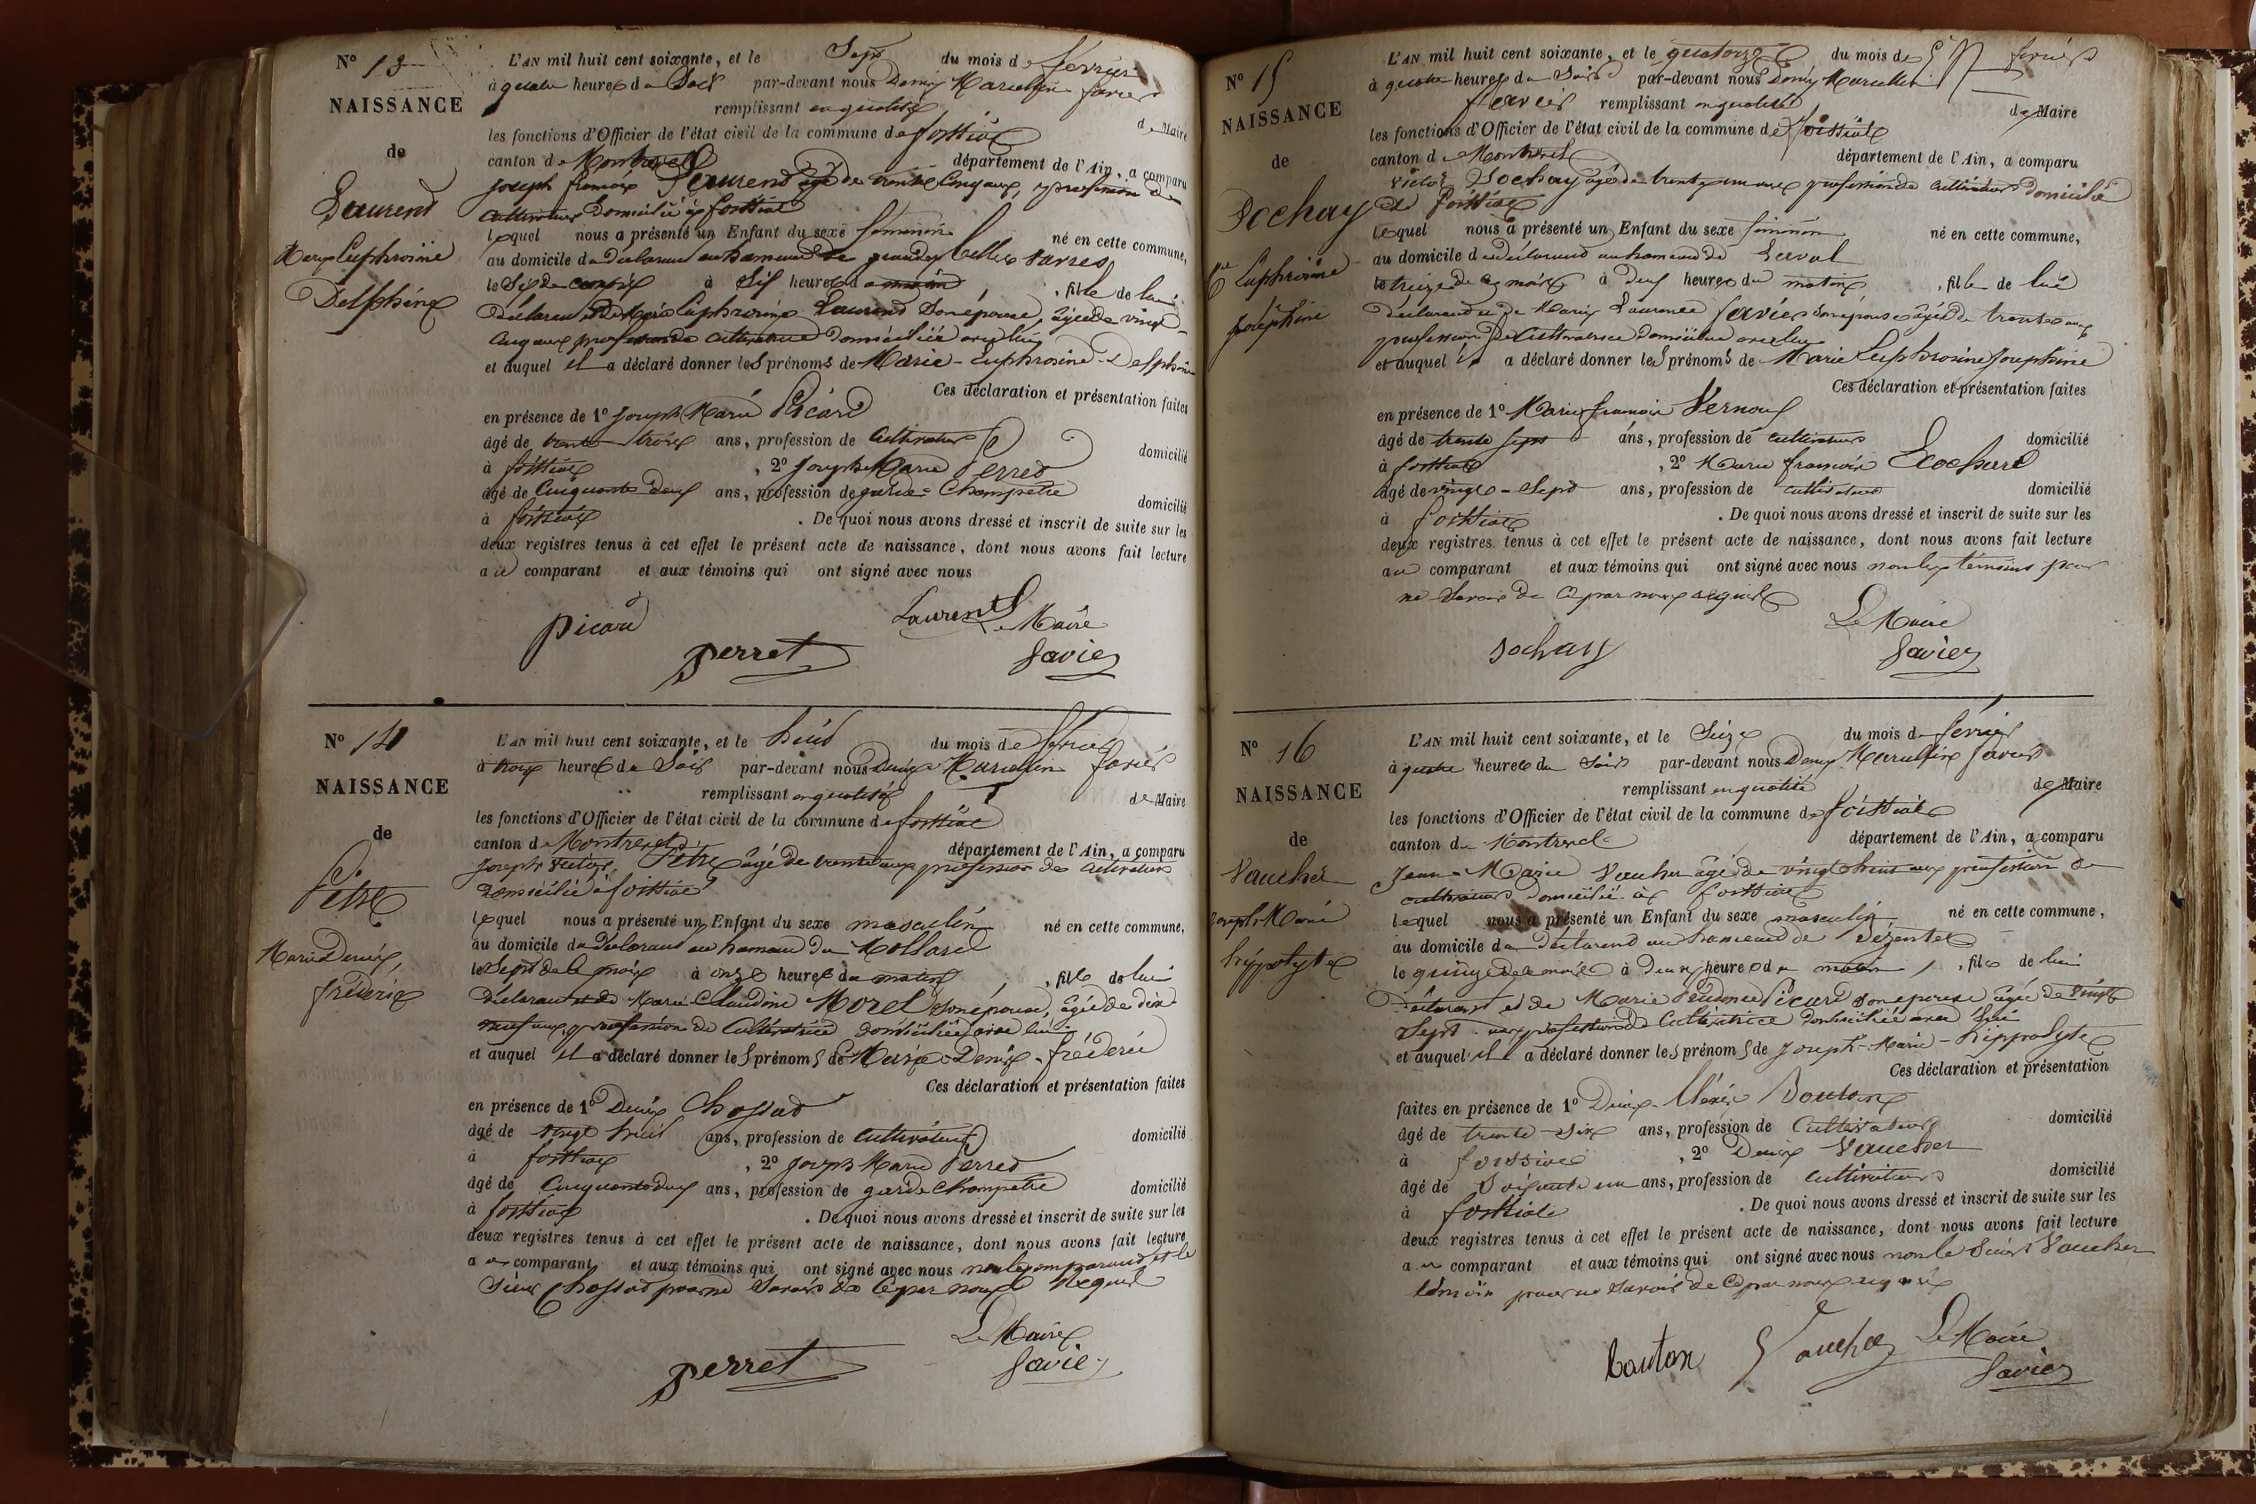 N° 13
NAISSANCE
de
Laurend
Marie Euphrosine
Delphine
L'AN mil huit cent soixante, et le Sept du mois de février
à quatre heures du Soir par-devant nous Denis Marcellin favier
remplissant en qualité de Maire
les fonctions d'Officier de l'état civil de la commune de foissiat
canton de Montrevel département de l'Ain, a comparu
Joseph françois Laurend âgé de trente Cinq ans, profession de
Cultivateur Domicilié à foissiat
lequel nous a présenté un Enfant du sexe féminin né en cette commune,
au domicile du déclarant au hameau de grandes Varres
le Six de ce mois à Six heures du matin, fille de lui
Déclarant et de Marie Euphrosine Laurend Son épouse, âgée de vingt
Cinq ans profession de cultivatrice Domiciliée avec lui
et auquel il a déclaré donner les prénoms de Marie-Euphrosine-Delphine
Ces déclaration et présentation faites
en présence de 1° Joseph Marie Picard
âgé de trente trois ans, profession de Cultivateur domicilié
à foissiat, 2° Joseph Marie Perret
âgé de Cinquante Deux ans, profession de garde-Champêtre domicilié
à foissiat. De quoi nous avons dressé et inscrit de suite sur les
deux registres tenus à cet effet le présent acte de naissance, dont nous avons fait lecture
au comparant et aux témoins qui ont signé avec nous
Picard Laurent Le Maire
perret favier
N° 14
NAISSANCE
de
Pètre
Marie Denis,
fréderic
L'AN mil huit cent soixante, et le huit du mois de février
à trois heures du Soir par-devant nous Denis Marcellin favier
remplissant en qualité de Maire
les fonctions d'Officier de l'état civil de la commune de foissiat
canton de Montrevel département de l'Ain, a comparu
Joseph Victor Pètre âgé de trente ans profession de Cultivateur
Domicilié à foissiat
lequel nous a présenté un Enfant du sexe masculin né en cette commune,
au domicile du déclarant au hameau du Mollard
le Sept de ce mois à onze heures du matin, fils de lui
Déclarant et de Marie Claudine Morel Son épouse, âgée de dix
neuf ans profession de Cultivatrice domiciliée avec lui
et auquel il a déclaré donner les prénoms de Marie-Denis-fréderic
Ces déclaration et présentation faites
en présence de 1° Denis Chossat
âgé de vingt huit ans, profession de Cultivateur domicilié
à foissiat, 2° Joseph Marie Perret
âgé de Cinquante deux ans, profession de garde Champêtre domicilié
à foissiat. De quoi nous avons dressé et inscrit de suite sur les
deux registres tenus à cet effet le présent acte de naissance, dont nous avons fait lecture
au comparant et aux témoins qui ont signé avec nous non le comparant et le
Sieur Chossat pour ne Savoir de Ce par nous Requis
Le Maire
perret favier
N° 15
NAISSANCE
de
Sochay
Mie Euphrosine
Joséphine
L'AN mil huit cent soixante, et le quatorze du mois de février
à quatre heures du Soir par-devant nous Denis Marcellin
favier remplissant en qualité de Maire
les fonctions d'Officier de l'état civil de la commune de foissiat
canton de Montrevel département de l'Ain, a comparu
Victor Sochay âgé de trente un ans profession de Cultivateur Domicilié
à foissiat
lequel nous a présenté un Enfant du sexe féminin né en cette commune,
au domicile du déclarant au hameau de Laval
le treize de ce mois à deux heures du matin, fille de lui
Déclarant et de Marie Laurence favier Son épouse âgée de trente ans
profession de Cultivatrice Domiciliée avec lui
et auquel il a déclaré donner les prénoms de Marie Euphrosine Joséphine
Ces déclaration et présentation faites
en présence de 1° Marie françois Vernoux
âgé de trente Sept ans, profession de cultivateur domicilié
à foissiat, 2° Marie françois Ecochard
âgé de vingt-Sept ans, profession de cultivateur domicilié
à foissiat. De quoi nous avons dressé et inscrit de suite sur les
deux registres tenus à cet effet le présent acte de naissance, dont nous avons fait lecture
au comparant et aux témoins qui ont signé avec nous non les témoins pour
ne Savoir de Ce par nous requis
Le Maire
sochay favier
N° 16
NAISSANCE
de
Vaucher
Joseph Marie
hippolyte
L'AN mil huit cent soixante, et le Seize du mois de février
à quatre heures du Soir par-devant nous Denis Marcellin favier
remplissant en qualité de Maire
les fonctions d'Officier de l'état civil de la commune de foissiat
canton de Montrevel département de l'Ain, a comparu
Jean-Marie Vaucher âgé de vingt huit ans profession de
cultivateur domicilié à foissiat
lequel nous a présenté un Enfant du sexe masculin né en cette commune,
au domicile du déclarant au hameau de
le quinze de ce mois à Deux heures du matin, fils de lui
Déclarant et de Marie Picard Son épouse âgée de vingt
Sept ans profession de Cultivatrice domiciliée avec lui
et auquel il a déclaré donner les prénoms de Joseph-Marie-hippolyte
Ces déclaration et présentation
faites en présence de 1° Denis Alexis Bouton
âgé de trente-Six ans, profession de Cultivateur domicilié
à foissiat, 2° Denis Vaucher
âgé de Soixante un ans, profession de Cultivateur domicilié
à foissiat. De quoi nous avons dressé et inscrit de suite sur les
deux registres tenus à cet effet le présent acte de naissance, dont nous avons fait lecture
au comparant et aux témoins qui ont signé avec nous non le Sieur Vaucher
témoin pour ne Savoir de Ce par nous requis
Bouton Vaucher Le Maire
favier